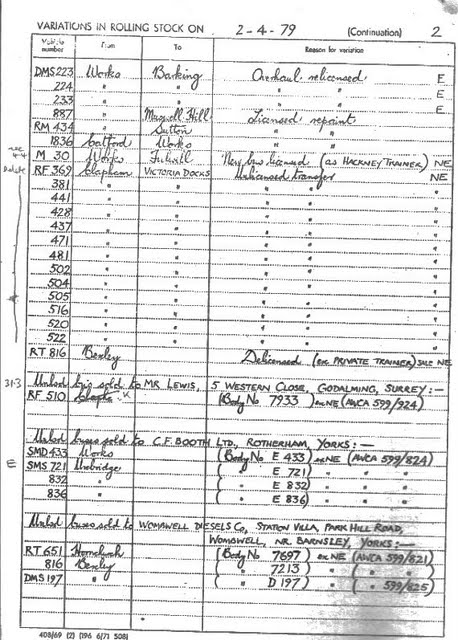 VARIATIONS IN ROLLING STOCK ON 2-4-79 (Continuation) 2
Vehicle number From To Reason for variation
DMS 223 Works Barking Overhaul relicensed E
224 " " " " E
233 " " " " E
887 " Muswell Hill Licensed repaint E
RM 434 " Sutton " "
1836 Catford Works " "
M 30 Works Fulwell New bus licensed (as HACKNEY TRAINER) NE
4-4
RF 369 Clapham VICTORIA DOCKS Unlicensed transfer NE
Delete
381 " " " "
441 " " " "
428 " " " "
437 " " " "
471 " " " "
481 " " " "
502 " " " "
504 " " " "
505 " " " "
516 " " " "
520 " " " "
522 " " " "
RT 816 Bexley Delicensed (ex PRIVATE TRAINER) NE
31-3 Unlicd bus sold to MR LEWIS, 5 WESTERN CLOSE, GODALMING, SURREY :-
RF 510 (Body No 7933) OLNE (AWCA 599/924)
Unlicd buses sold to C.F. BOOTH LTD., ROTHERHAM, YORKS :-
SMD 433 Works (Body No E 433) OLNE (AWCA 599/824)
E SMS 721 Uxbridge ( " E 721) " " "
832 " ( " E 832) " " "
836 " ( " E 836) " " "
Unlicd buses sold to WOMBWELL DIESELS Co, STATION VILLA, PARK HILL ROAD,
WOMBWELL, NR. BARNSLEY, YORKS :-
RT 651 Hornchurch (Body No 7697) OLNE (AWCA 599/821)
816 Bexley ( " 7213) " ( " " )
DMS 197 " ( " D 197) " ( " 599/625)
408/69 (2) (196 6/71 50B)